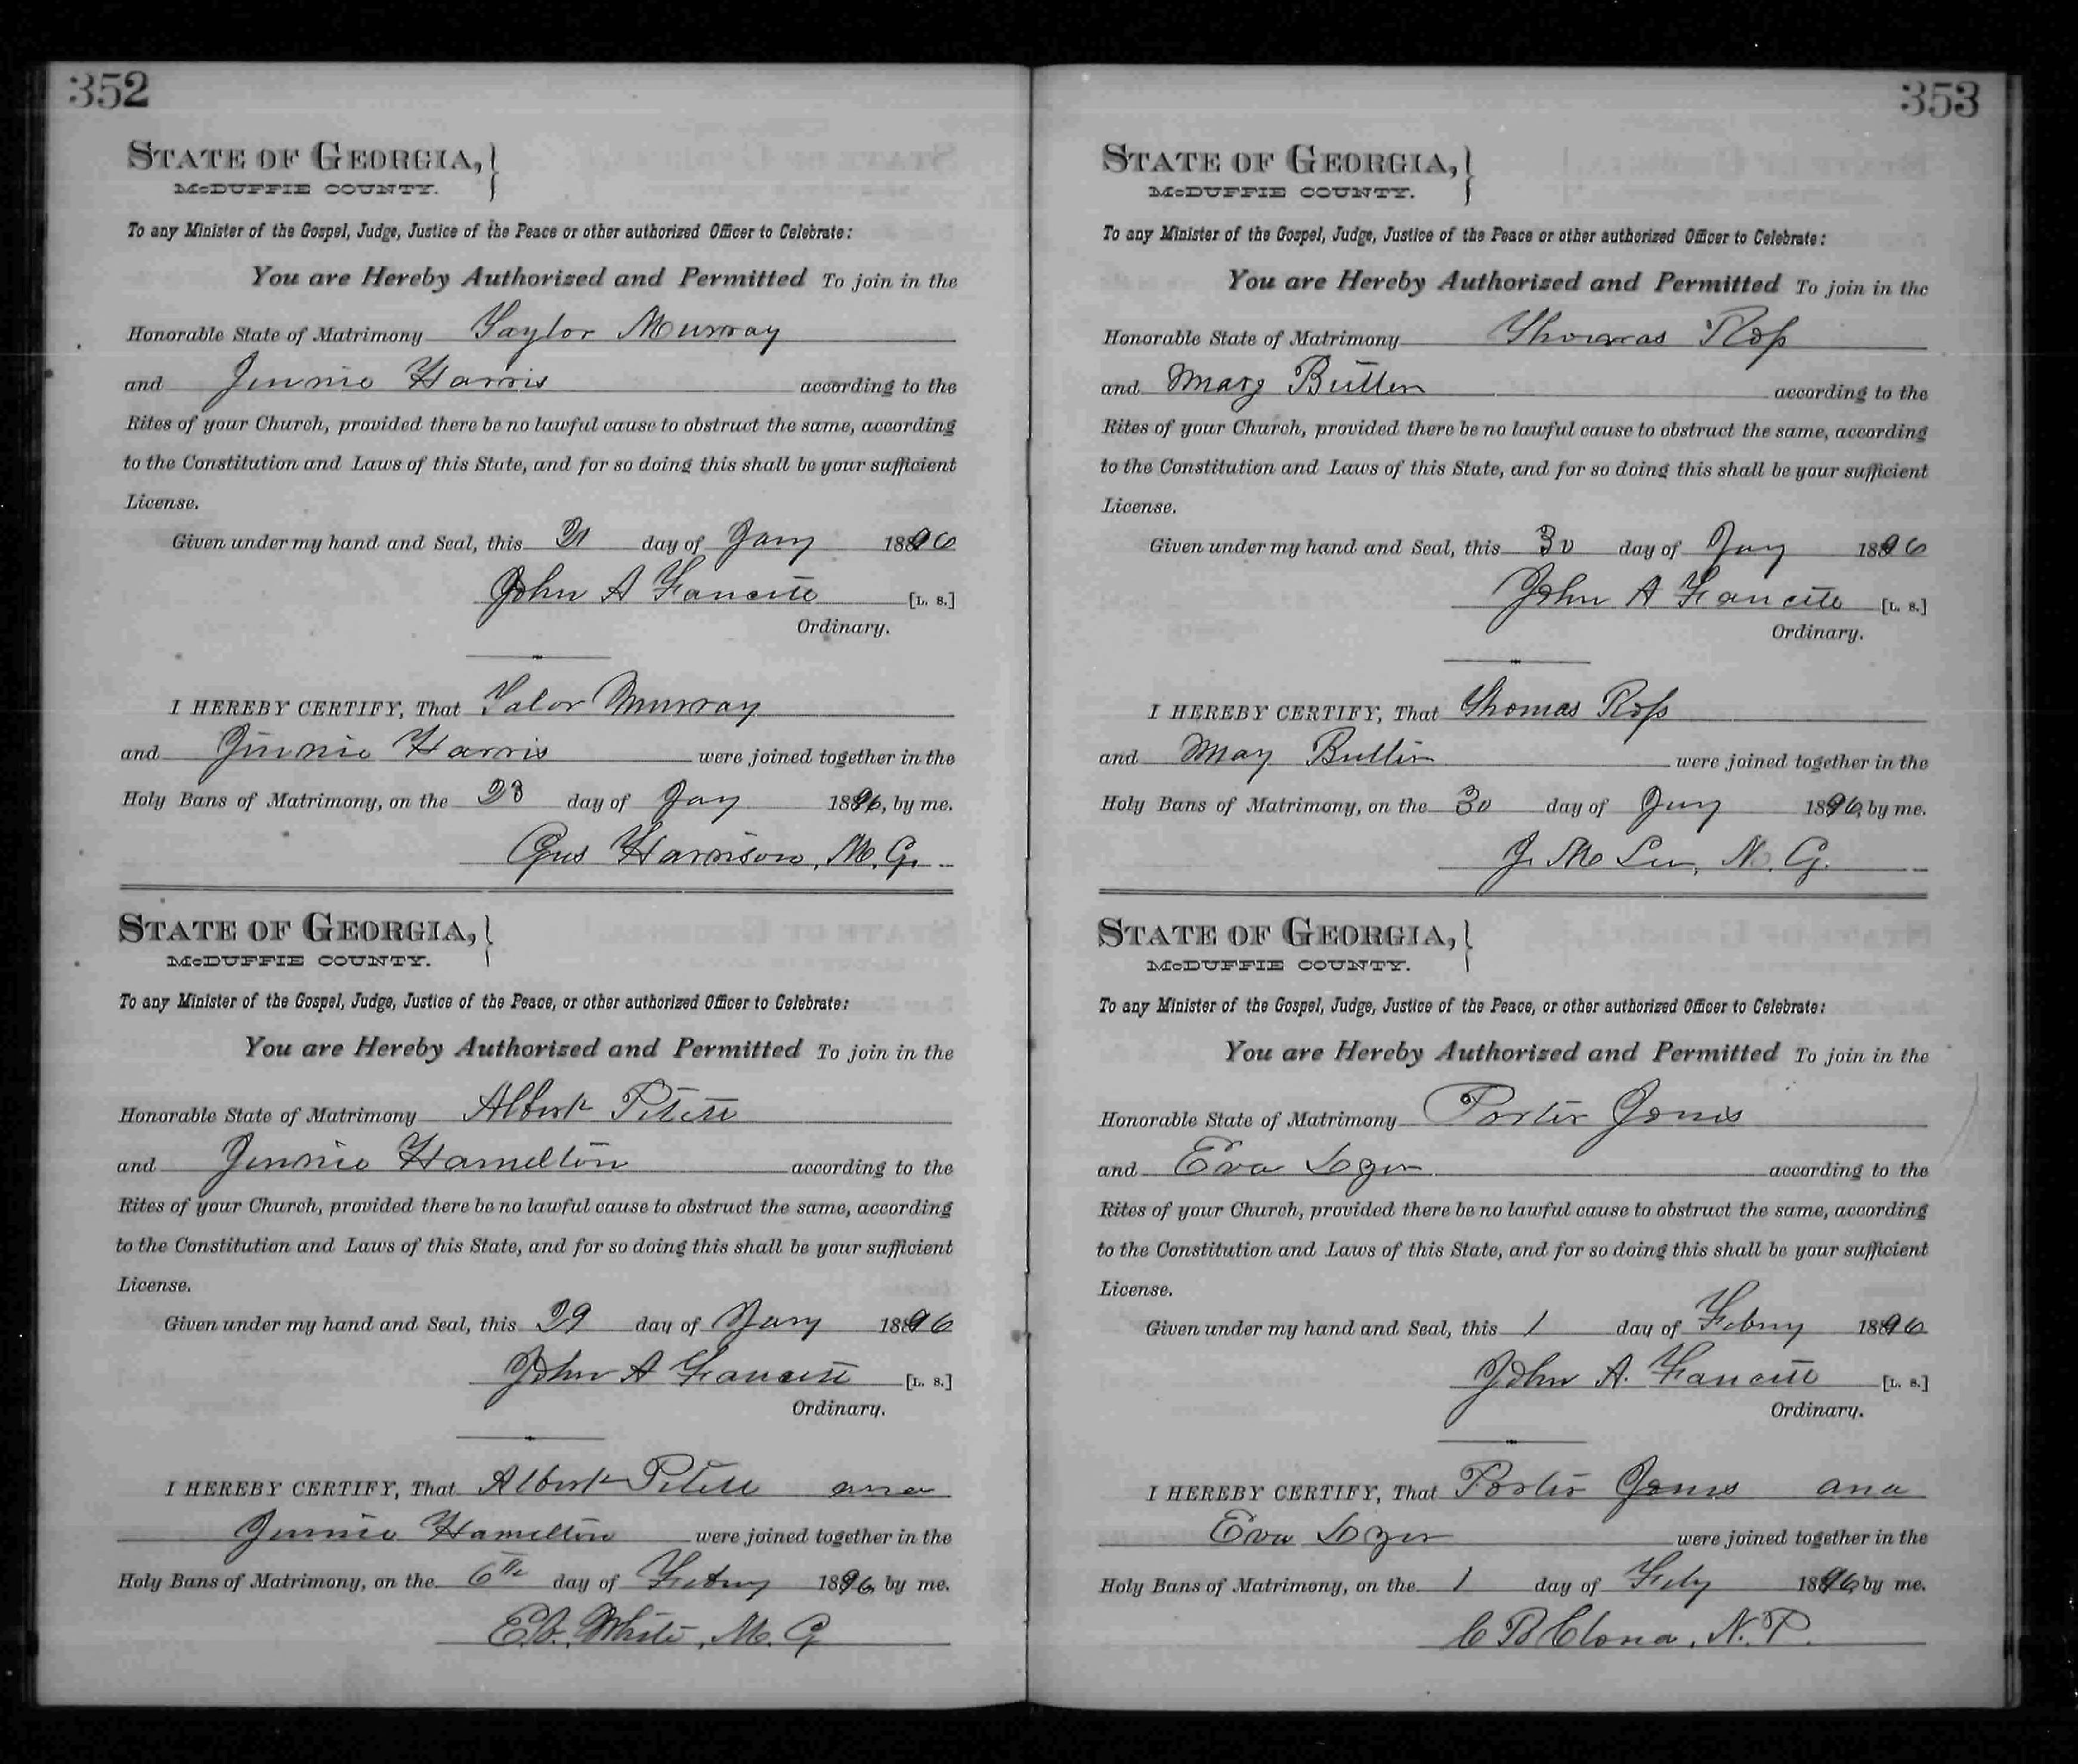 352
STATE OF GEORGIA,
McDUFFIE COUNTY.
To any Minister of the Gospel, Judge, Justice of the Peace or other authorized Officer to Celebrate:
You are Hereby Authorized and Permitted To join in the
Honorable State of Matrimony Taylor Murray
and Jennie Harris according to the
Rites of your Church, provided there be no lawful cause to obstruct the same, according
to the Constitution and Laws of this State, and for so doing this shall be your sufficient
License.
Given under my hand and Seal, this 21 day of Jany 1896
John A [L. S.]
Ordinary.
I HEREBY CERTIFY, That Talor Murray
and Jinnie Harris were joined together in the
Holy Bans of Matrimony, on the 23 day of Jay 1896, by me.
Gus Harrison, M. G.
STATE OF GEORGIA,
McDUFFIE COUNTY.
To any Minister of the Gospel, Judge, Justice of the Peace, or other authorized Officer to Celebrate:
You are Hereby Authorized and Permitted To join in the
Honorable State of Matrimony Albert
and Jennie Hamelton according to the
Rites of your Church, provided there be no lawful cause to obstruct the same, according
to the Constitution and Laws of this State, and for so doing this shall be your sufficient
License.
Given under my hand and Seal, this 29 day of Jany 1896
John A [L. S.]
Ordinary.
I HEREBY CERTIFY, That Albert and
Jennie Hamelton were joined together in the
Holy Bans of Matrimony, on the 6th day of Febny 1896, by me.
White, M. G
353
STATE OF GEORGIA,
McDUFFIE COUNTY.
To any Minister of the Gospel, Judge, Justice of the Peace or other authorized Officer to Celebrate:
You are Hereby Authorized and Permitted To join in the
Honorable State of Matrimony Thomas Ross
and Mary Butler according to the
Rites of your Church, provided there be no lawful cause to obstruct the same, according
to the Constitution and Laws of this State, and for so doing this shall be your sufficient
License.
Given under my hand and Seal, this 30 day of Jany 1896
John A [L. S.]
Ordinary.
I HEREBY CERTIFY, That Thomas Ross
and May Butler were joined together in the
Holy Bans of Matrimony, on the 30 day of Jany 1896, by me.
J. M. G.
STATE OF GEORGIA,
McDUFFIE COUNTY.
To any Minister of the Gospel, Judge, Justice of the Peace, or other authorized Officer to Celebrate:
You are Hereby Authorized and Permitted To join in the
Honorable State of Matrimony Porter Jones
and Eva according to the
Rites of your Church, provided there be no lawful cause to obstruct the same, according
to the Constitution and Laws of this State, and for so doing this shall be your sufficient
License.
Given under my hand and Seal, this 1 day of Febny 1896
John A. [L. S.]
Ordinary.
I HEREBY CERTIFY, That Porter Jones and
Eva were joined together in the
Holy Bans of Matrimony, on the 1 day of Feby 1896, by me.
C B N. P.